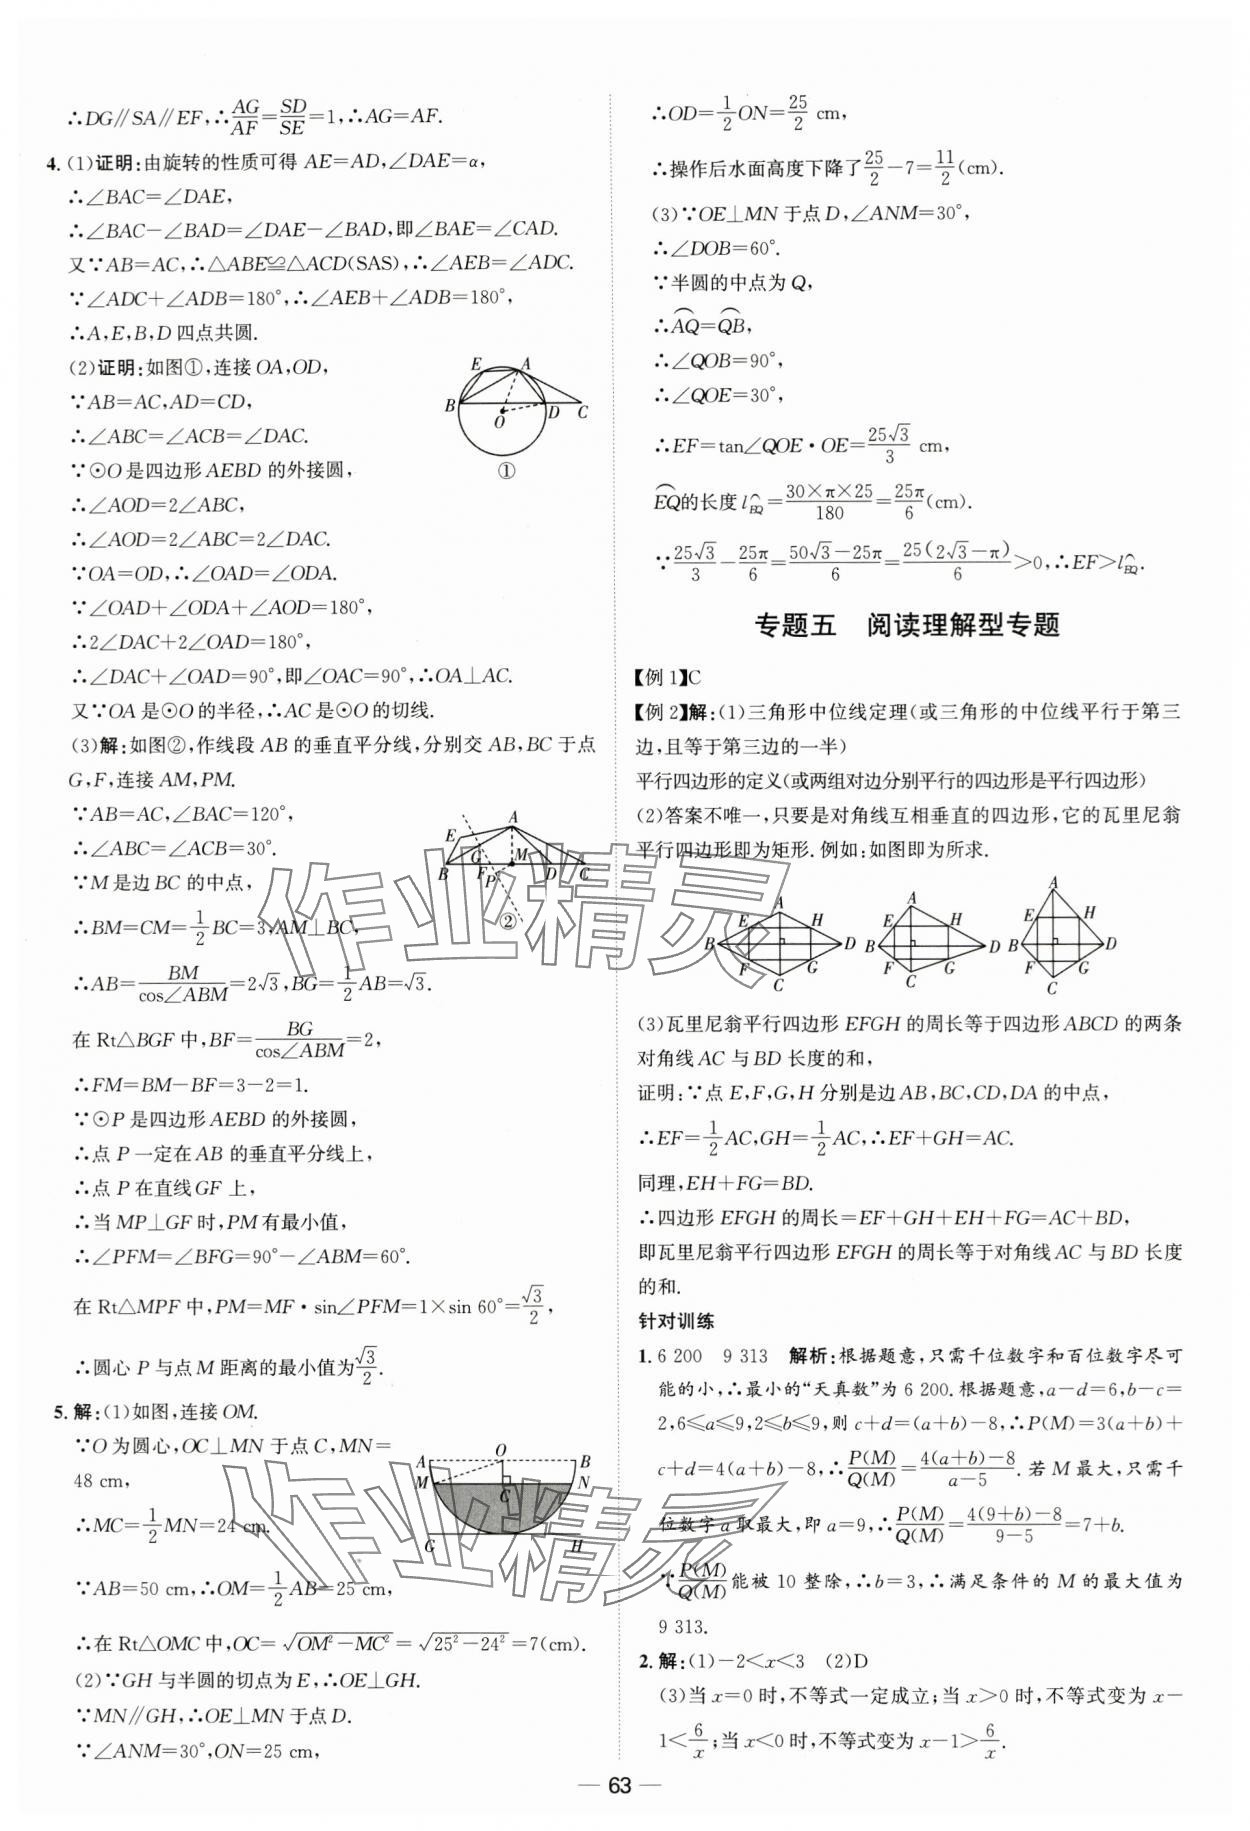 ∴DG∥SA∥EF,∴AG/AF=SD/SE=1,∴AG=AF.
4.(1)证明:由旋转的性质可得 AE=AD,∠DAE=α,
∴∠BAC=∠DAE,
∴∠BAC-∠BAD=∠DAE-∠BAD,即∠BAE=∠CAD.
又∵AB=AC,∴△ABE≌△ACD(SAS),∴∠AEB=∠ADC.
∵∠ADC+∠ADB=180°,∴∠AEB+∠ADB=180°,
∴A,E,B,D 四点共圆.
(2)证明:如图①,连接 OA,OD,
∵AB=AC,AD=CD,
∴∠ABC=∠ACB=∠DAC.
∵⊙O 是四边形 AEBD 的外接圆,
∴∠AOD=2∠ABC,
∴∠AOD=2∠ABC=2∠DAC.
∵OA=OD,∴∠OAD=∠ODA.
∵∠OAD+∠ODA+∠AOD=180°,
∴2∠DAC+2∠OAD=180°,
∴∠DAC+∠OAD=90°,即∠OAC=90°,∴OA⊥AC.
又∵OA 是⊙O 的半径,∴AC 是⊙O 的切线.
E A B D C O
①
(3)解:如图②,作线段 AB 的垂直平分线,分别交 AB,BC 于点
G,F,连接 AM,PM.
∵AB=AC,∠BAC=120°,
∴∠ABC=∠ACB=30°.
∵M 是边 BC 的中点,
∴BM=CM=1/2 BC=3,AM⊥BC,
∴AB=BM/cos∠ABM=2√3,BG=1/2 AB=√3.
A E G M B F P D C
②
在 Rt△BGF 中,BF=BG/cos∠ABM=2,
∴FM=BM-BF=3-2=1.
∵⊙P 是四边形 AEBD 的外接圆,
∴点 P 一定在 AB 的垂直平分线上,
∴点 P 在直线 GF 上,
∴当 MP⊥GF 时,PM 有最小值,
∴∠PFM=∠BFG=90°-∠ABM=60°.
在 Rt△MPF 中,PM=MF·sin∠PFM=1×sin 60°=√3/2,
∴圆心 P 与点 M 距离的最小值为√3/2.
5.解:(1)如图,连接 OM.
∵O 为圆心,OC⊥MN 于点 C,MN=
48 cm,
∴MC=1/2 MN=24 cm.
∵AB=50 cm,∴OM=1/2 AB=25 cm,
A O B M N C G H
∴在 Rt△OMC 中,OC=√(OM²-MC²)=√(25²-24²)=7(cm).
(2)∵GH 与半圆的切点为 E,∴OE⊥GH.
∵MN∥GH,∴OE⊥MN 于点 D.
∵∠ANM=30°,ON=25 cm,
∴OD=1/2 ON=25/2 cm,
∴操作后水面高度下降了25/2-7=11/2(cm).
(3)∵OE⊥MN 于点 D,∠ANM=30°,
∴∠DOB=60°.
∵半圆的中点为 Q,
∴⌒AQ=⌒QB,
∴∠QOB=90°,
∴∠QOE=30°,
∴EF=tan∠QOE·OE=25√3/3 cm,
⌒EQ的长度 l⌒EQ=30×π×25/180=25π/6(cm).
∵25√3/3-25π/6=(50√3-25π)/6=25(2√3-π)/6>0,∴EF>l⌒EQ.
专题五 阅读理解型专题
【例 1】C
【例 2】解:(1)三角形中位线定理(或三角形的中位线平行于第三
边,且等于第三边的一半)
平行四边形的定义(或两组对边分别平行的四边形是平行四边形)
(2)答案不唯一,只要是对角线互相垂直的四边形,它的瓦里尼翁
平行四边形即为矩形.例如:如图即为所求.
A E H B D F G C
A E H B D F G C
A E H B D F G C
(3)瓦里尼翁平行四边形 EFGH 的周长等于四边形 ABCD 的两条
对角线 AC 与 BD 长度的和,
证明:∵点 E,F,G,H 分别是边 AB,BC,CD,DA 的中点,
∴EF=1/2 AC,GH=1/2 AC,∴EF+GH=AC.
同理,EH+FG=BD.
∴四边形 EFGH 的周长=EF+GH+EH+FG=AC+BD,
即瓦里尼翁平行四边形 EFGH 的周长等于对角线 AC 与 BD 长度
的和.
针对训练
1.6 200 9 313 解析:根据题意,只需千位数字和百位数字尽可
能的小,∴最小的“天真数”为 6 200.根据题意,a-d=6,b-c=
2,6≤a≤9,2≤b≤9,则 c+d=(a+b)-8,∴P(M)=3(a+b)+
c+d=4(a+b)-8,∴P(M)/Q(M)=(4(a+b)-8)/(a-5).若 M 最大,只需千
位数字 a 取最大,即 a=9,∴P(M)/Q(M)=(4(9+b)-8)/(9-5)=7+b.
∵P(M)/Q(M)能被 10 整除,∴b=3,∴满足条件的 M 的最大值为
9 313.
2.解:(1)-2<x<3 (2)D
(3)当 x=0 时,不等式一定成立;当 x>0 时,不等式变为 x-
1<6/x;当 x<0 时,不等式变为 x-1>6/x.
— 63 —
作业精灵
作业精灵